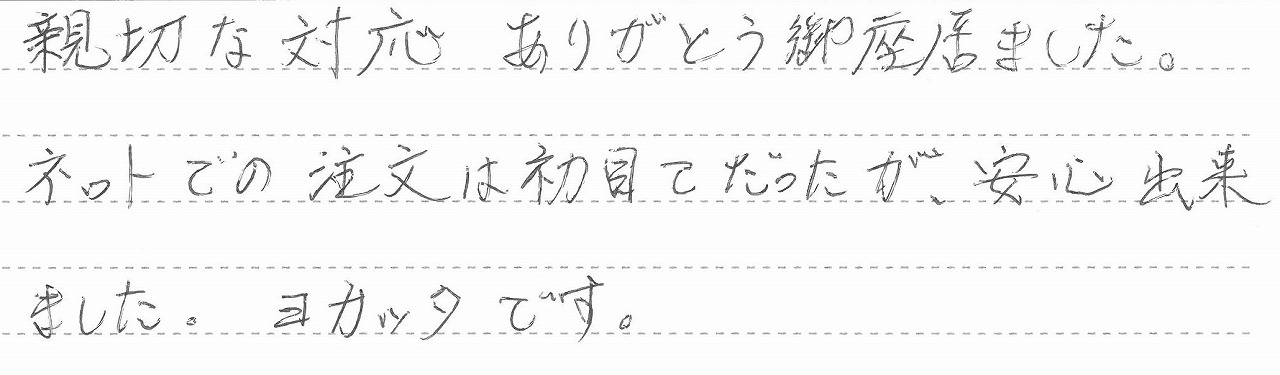 親切な対応 ありがとう御座居ました。
ネットでの注文は初目てだったが、安心出来
ました。 ヨカッタです。